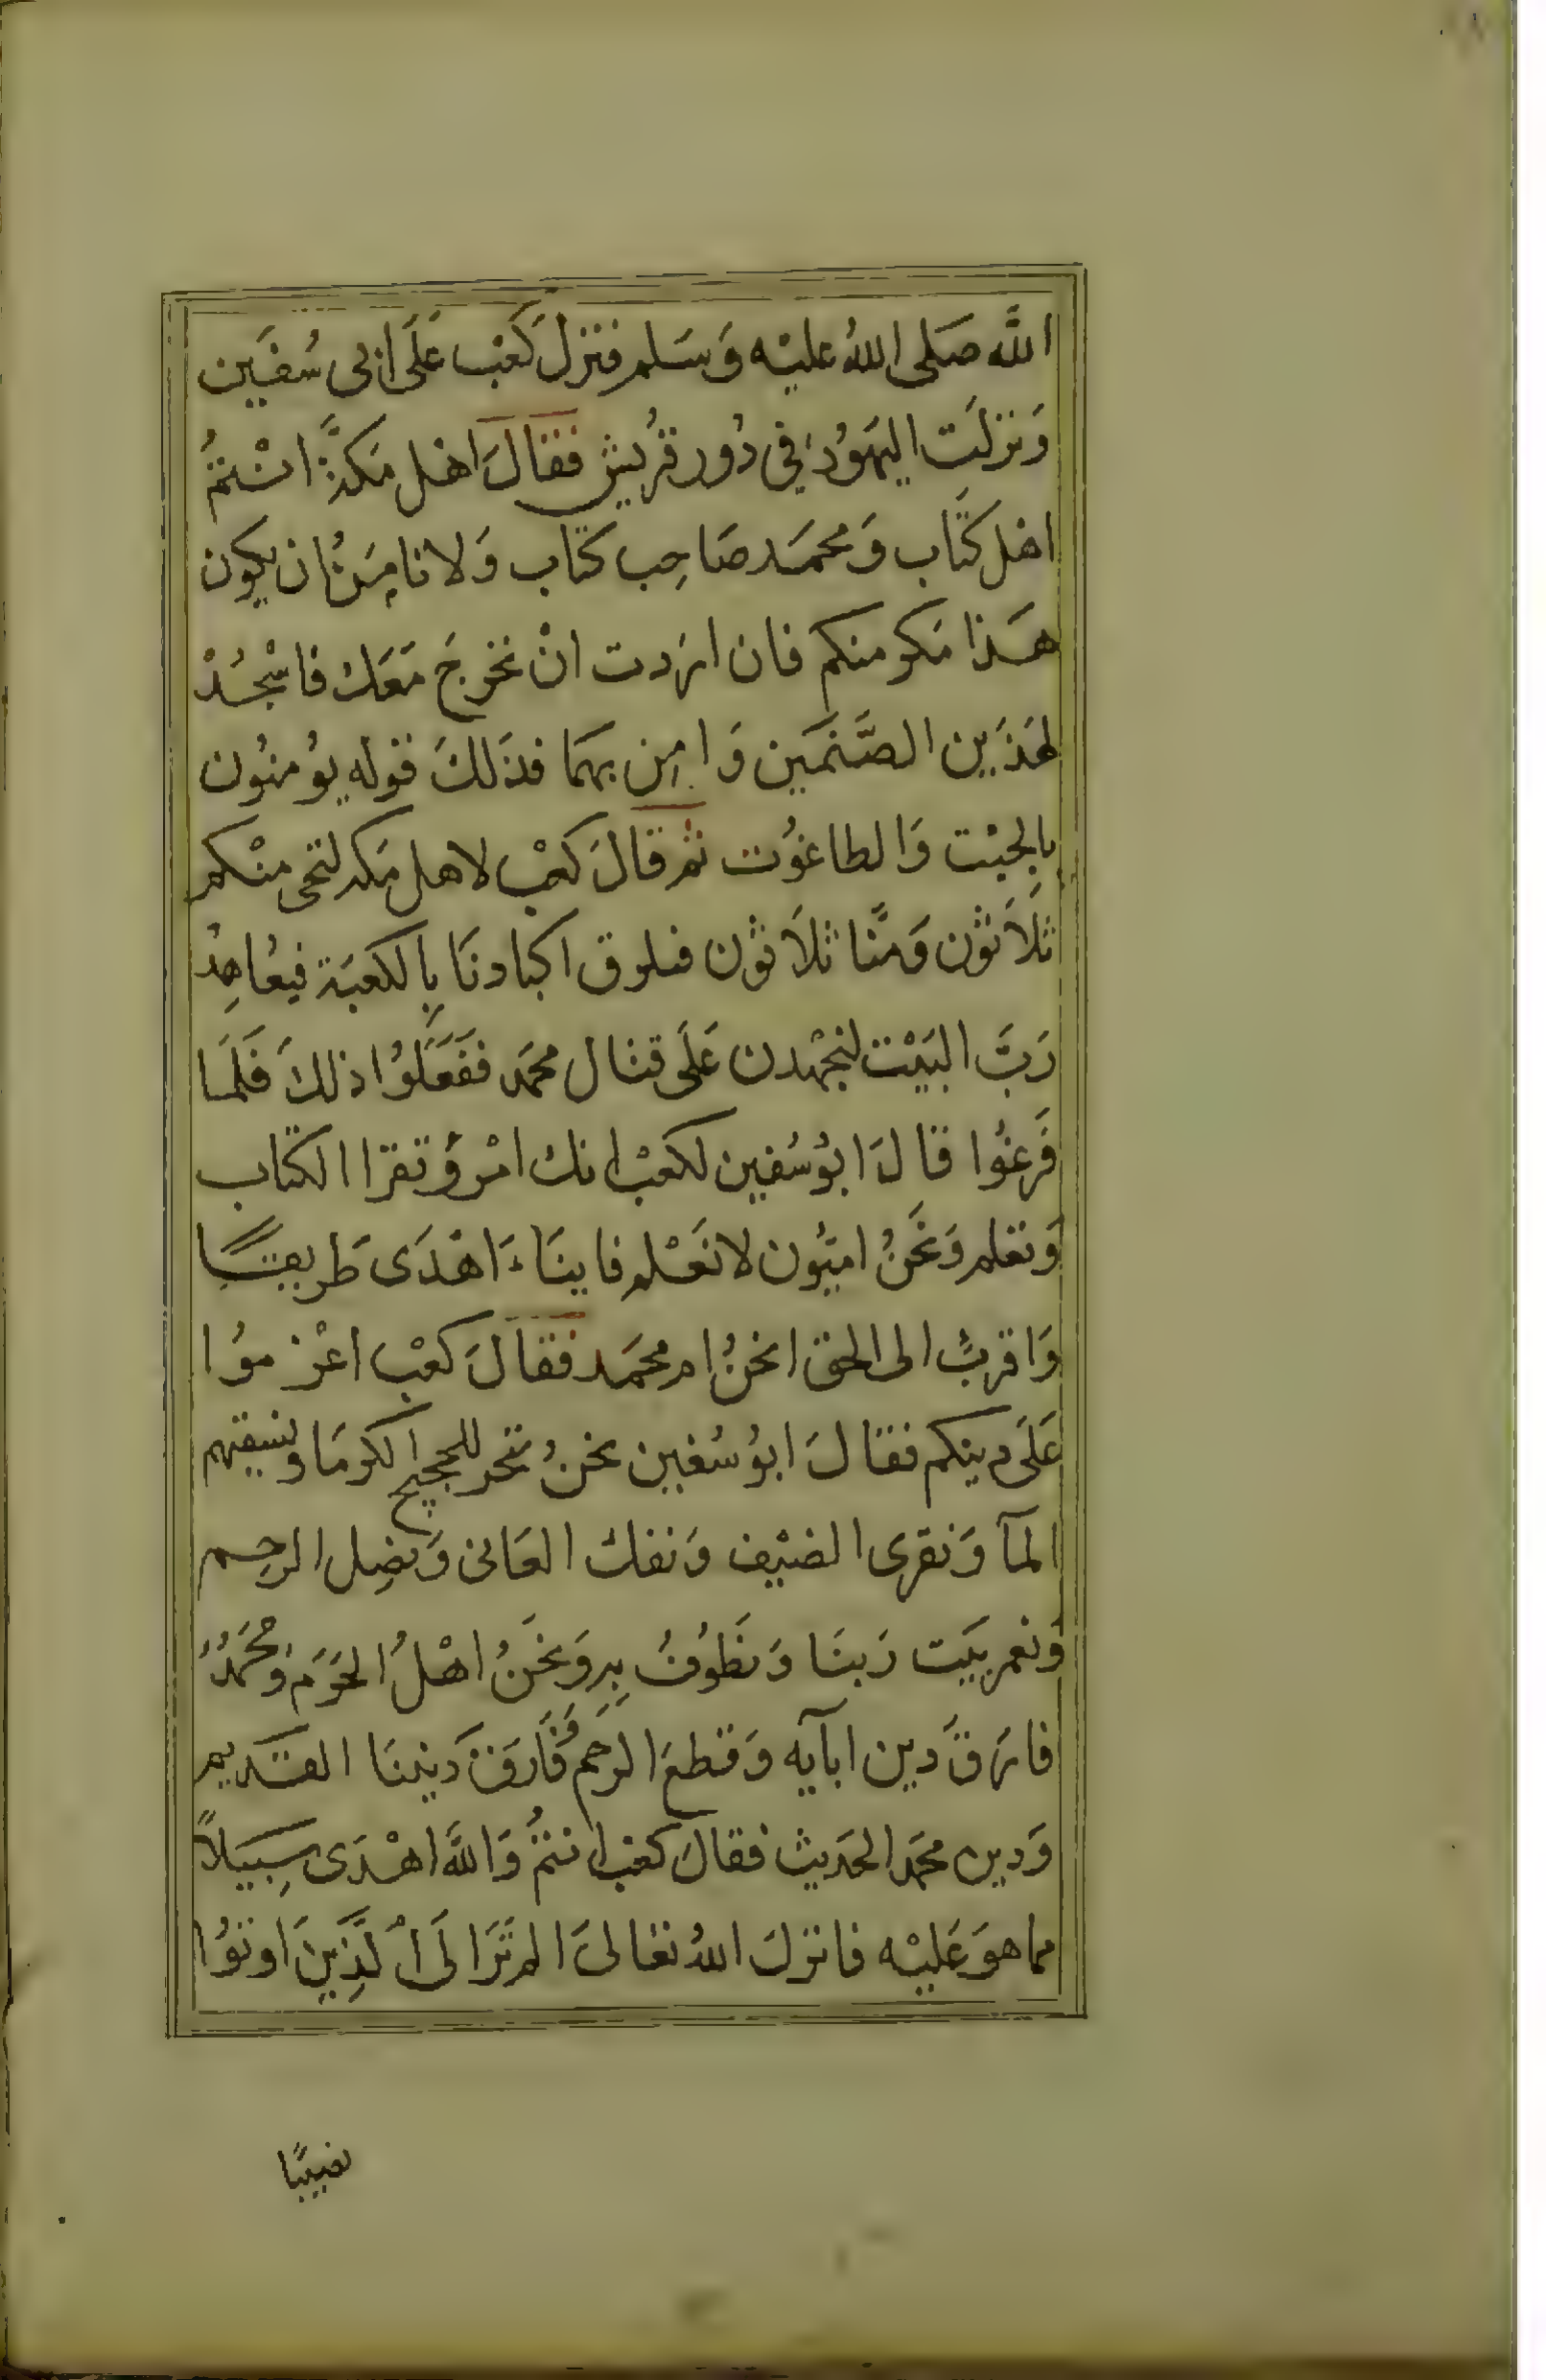 اللَّه صَلى اللهُ عليْه وَسَلم فنزل كَعْب عَلَى ابى سُفيَن
وَنزلَت اليَهُودُ فِى دُور قُريش فقالَ اهْل مَكةَّ انْتمُ
اهْل كتَاب وَمحمَد صَاحِب كتَاب وَلا نامِنُ ان يكون
هَذا مَكر منكم فان اردت انْ نخرجَ مَعَك فاسْجُدْ
لهَذَين الصَّنَمَين وَامِن بهمَا فذَلكَ قوله يُومنوُن
بِالجبْت وَالطاغوُت ثم قالَ كعْب لاهل مَكه لتجى منْكم
ثَلاَثوُن وَمنَّا ثلاَثوُن فنلزق اكبادنَا بِالكعبَة فيعُاهِدُ
رَبَّ البَيْت لنجهْدن عَلَى قتال محمَد ففَعَلوُا ذلكَ فَلمَا
فَرغُوا قالَ ابوُسُفين لكعْب انك امْرؤ تقرا الكتاب
وَتعلم وَنَحنُ اميّوُن لا نَعْلم فاينَاءَ اهْدَى طَريقًا
وَاقربُ الى الحق انحنُ ام محمَد فقَالَ كعْب اعْزموُا
عَلَى دينكم فقالَ ابوُسُفين نحنُ ننحر للحجيج الكومَا ونسقيهم
المآ وَنقرى الضيْف وَنفك العَانى وَنصِل الرحِم
وَنعمر بَيت رَبنَا وَنَطوُفُ بِه وَنحَنُ اهْلُ الحَرَم وَمُحَمدُ
فارقَ دِين ابآيه وَقطعَ الرَحِم وَفَارَقَ دَيننَا القَديم
وَدين محمَد الحدَيث فقالَ كعْب انتمُ وَاللَّه اهْدَى سِبَيلاً
مما هوَ عَليْه فانزلَ اللهُ تعَالىَ الم تَرَ الَى الَّذِينَ اوتوُا
نصيبًا